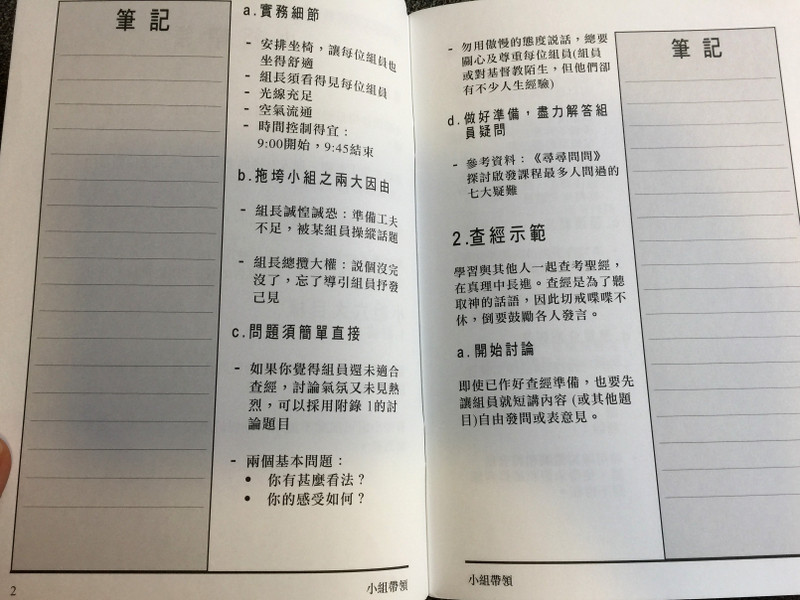 筆記
a.實務細節
- 安排坐椅，讓每位組員也
坐得舒適
- 組長須看得見每位組員
- 光線充足
- 空氣流通
- 時間控制得宜：
9:00開始，9:45結束
b.拖垮小組之兩大因由
- 組長誠惶誠恐：準備工夫
不足，被某組員操縱話題
- 組長總攬大權：説個沒完
沒了，忘了導引組員抒發
己見
c.問題須簡單直接
- 如果你覺得組員還未適合
查經，討論氣氛又未見熱
烈，可以採用附錄 1的討
論題目
- 兩個基本問題：
• 你有甚麼看法？
• 你的感受如何？
2
小組帶領
- 勿用傲慢的態度説話，總要
關心及尊重每位組員(組員
或對基督教陌生，但他們卻
有不少人生經驗)
d.做好準備，盡力解答組
員疑問
- 參考資料：《尋尋問問》
探討啟發課程最多人問過的
七大疑難
2.查經示範
學習與其他人一起查考聖經，
在真理中長進。查經是為了聽
取神的話語，因此切戒喋喋不
休，倒要鼓勵各人發言。
a.開始討論
即使已作好查經準備，也要先
讓組員就短講內容 (或其他題
目)自由發問或表意見。
筆記
小組帶領